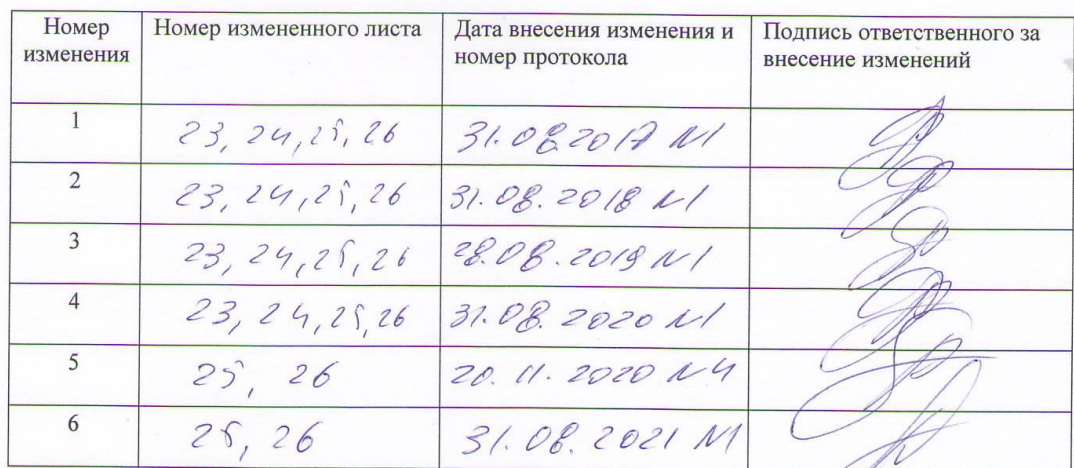 Номер изменения Номер измененного листа Дата внесения изменения и номер протокола Подпись ответственного за внесение изменений
1 23, 24, 25, 26 31.08.2017 N1
2 23, 24, 25, 26 31.08.2018 N1
3 23, 24, 25, 26 28.08.2019 N1
4 23, 24, 25, 26 31.08.2020 N1
5 25, 26 20.11.2020 N4
6 25, 26 31.08.2021 N1